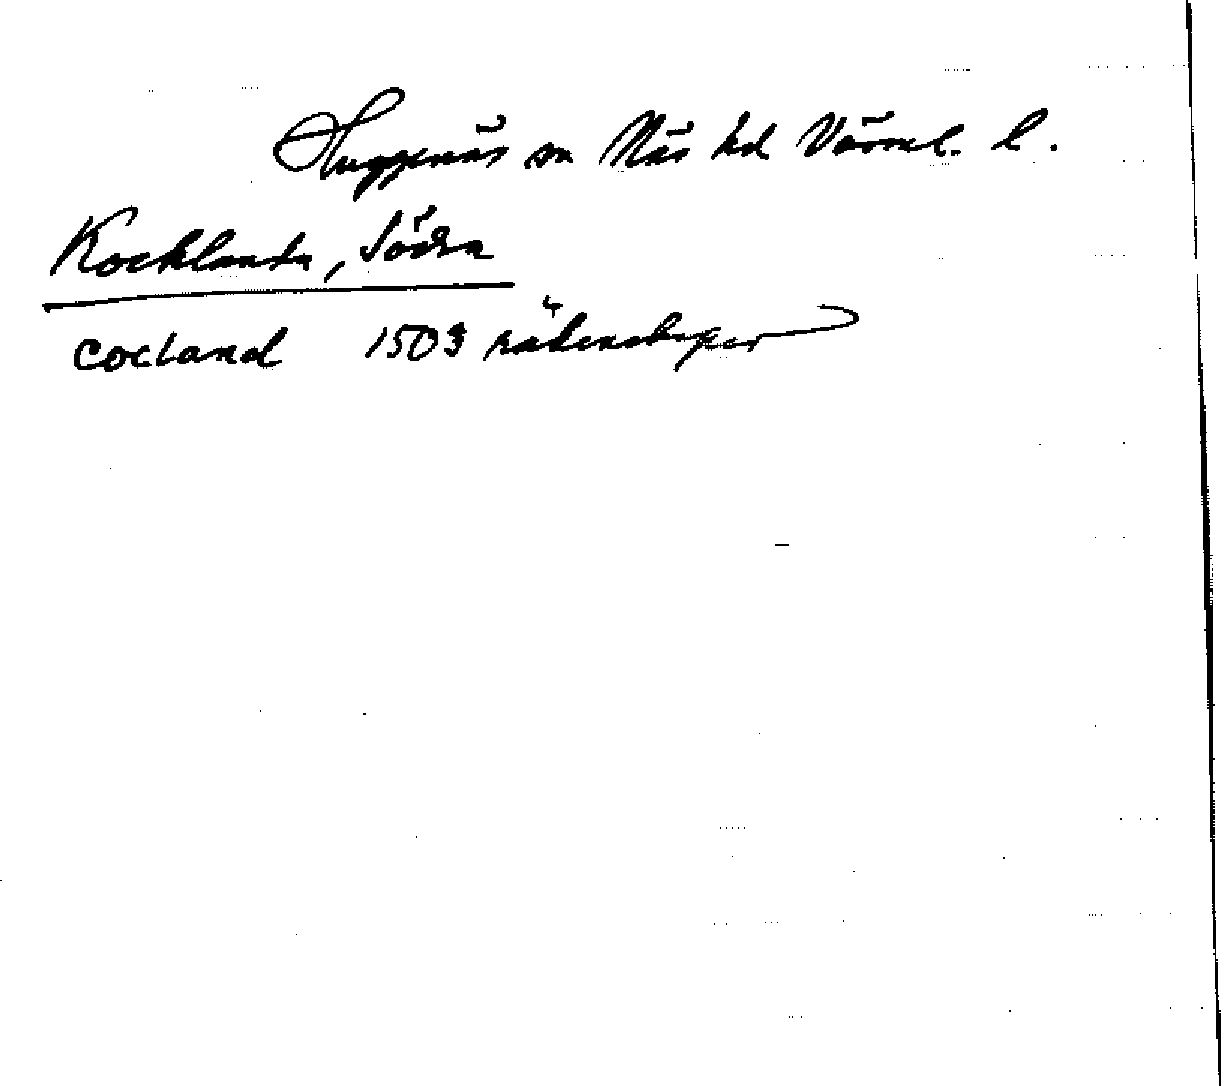 Huggenäs sn Näs hd Värml. l.
Kocklanda, Södra
cocland 1503 räkenskaper